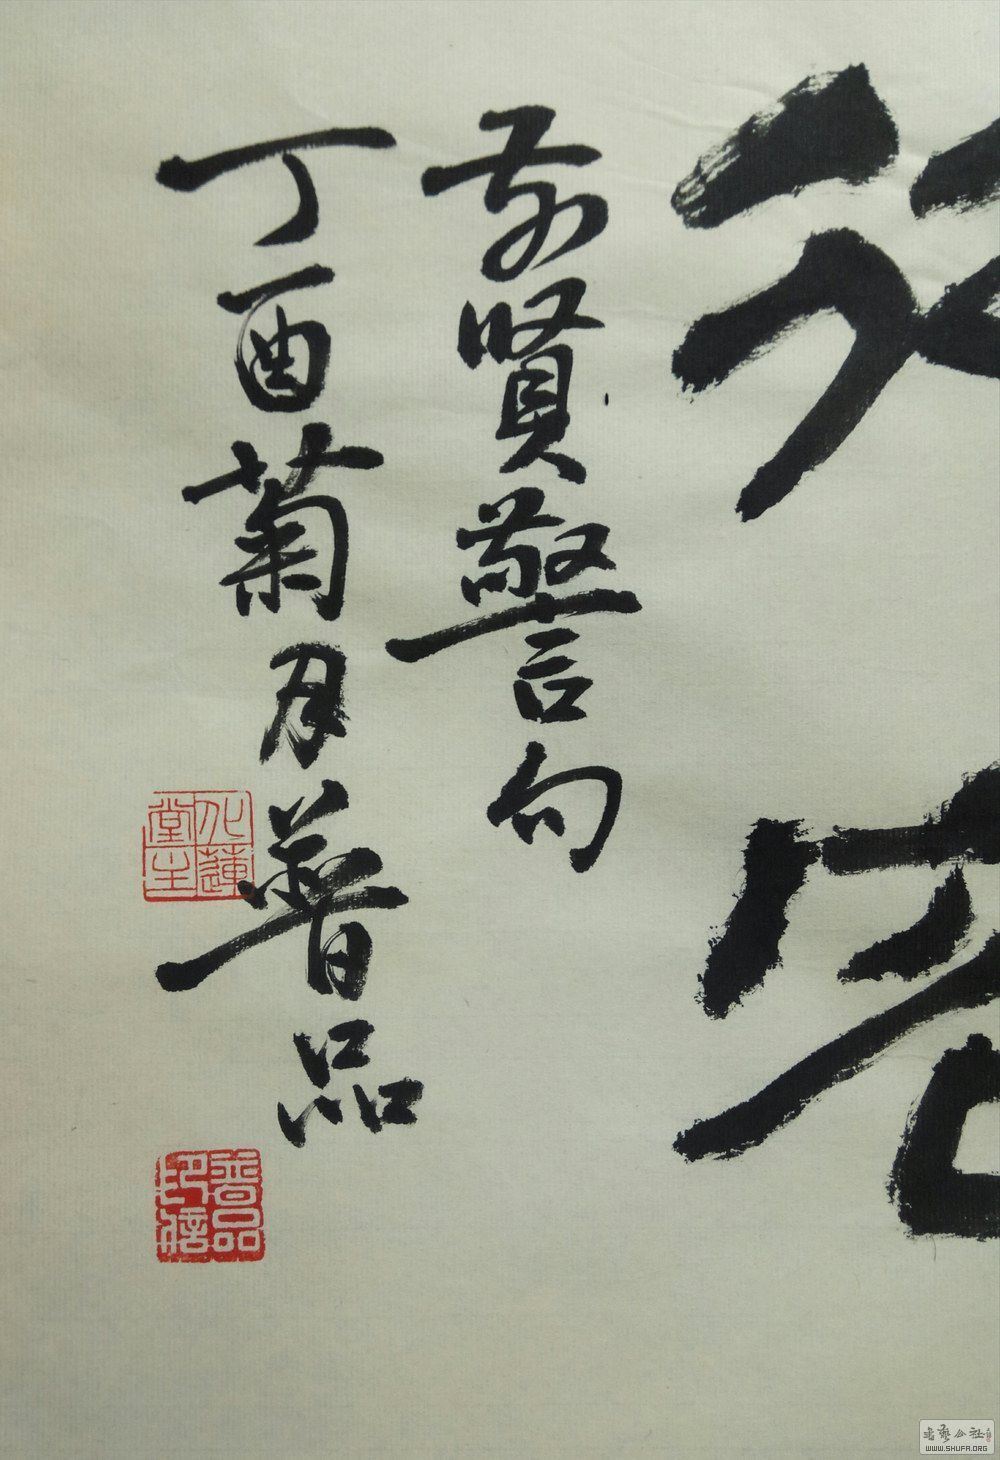 前賢警句
丁酉菊月普品
蓮堂主
普品印信
書藝公社
WWW.SHUFA.ORG